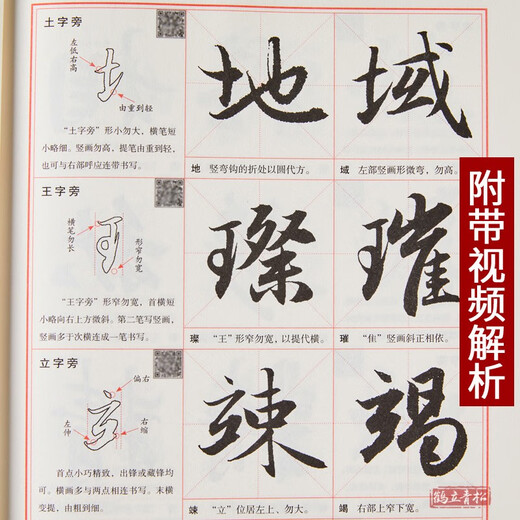 土字旁
左低右高
由重到轻
“土字旁”形小勿大，横笔短
小略细。竖画勿高，提笔由重到轻，
也可与右部呼应连带书写。
地
域
地 竖弯钩的折处以圆代方。
域 左部竖画形微弯，勿高。
王字旁
横笔勿长
形窄勿宽
“王字旁”形窄勿宽，首横短
小略向右上方微斜。第二笔写竖画，
竖画多于次横连成一笔书写。
璨
璀
璨 “王”形窄勿宽，以提代横。
璀 “隹”竖画斜正相依。
立字旁
偏右
左伸
右缩
首点小巧精致，出锋或藏锋均
可。横画多与两点相连书写。末横
变提，由粗到细。
竦
竭
竦 “立”位居左上、勿大。
竭 右部上窄下宽。
附带视频解析
鹤立青松